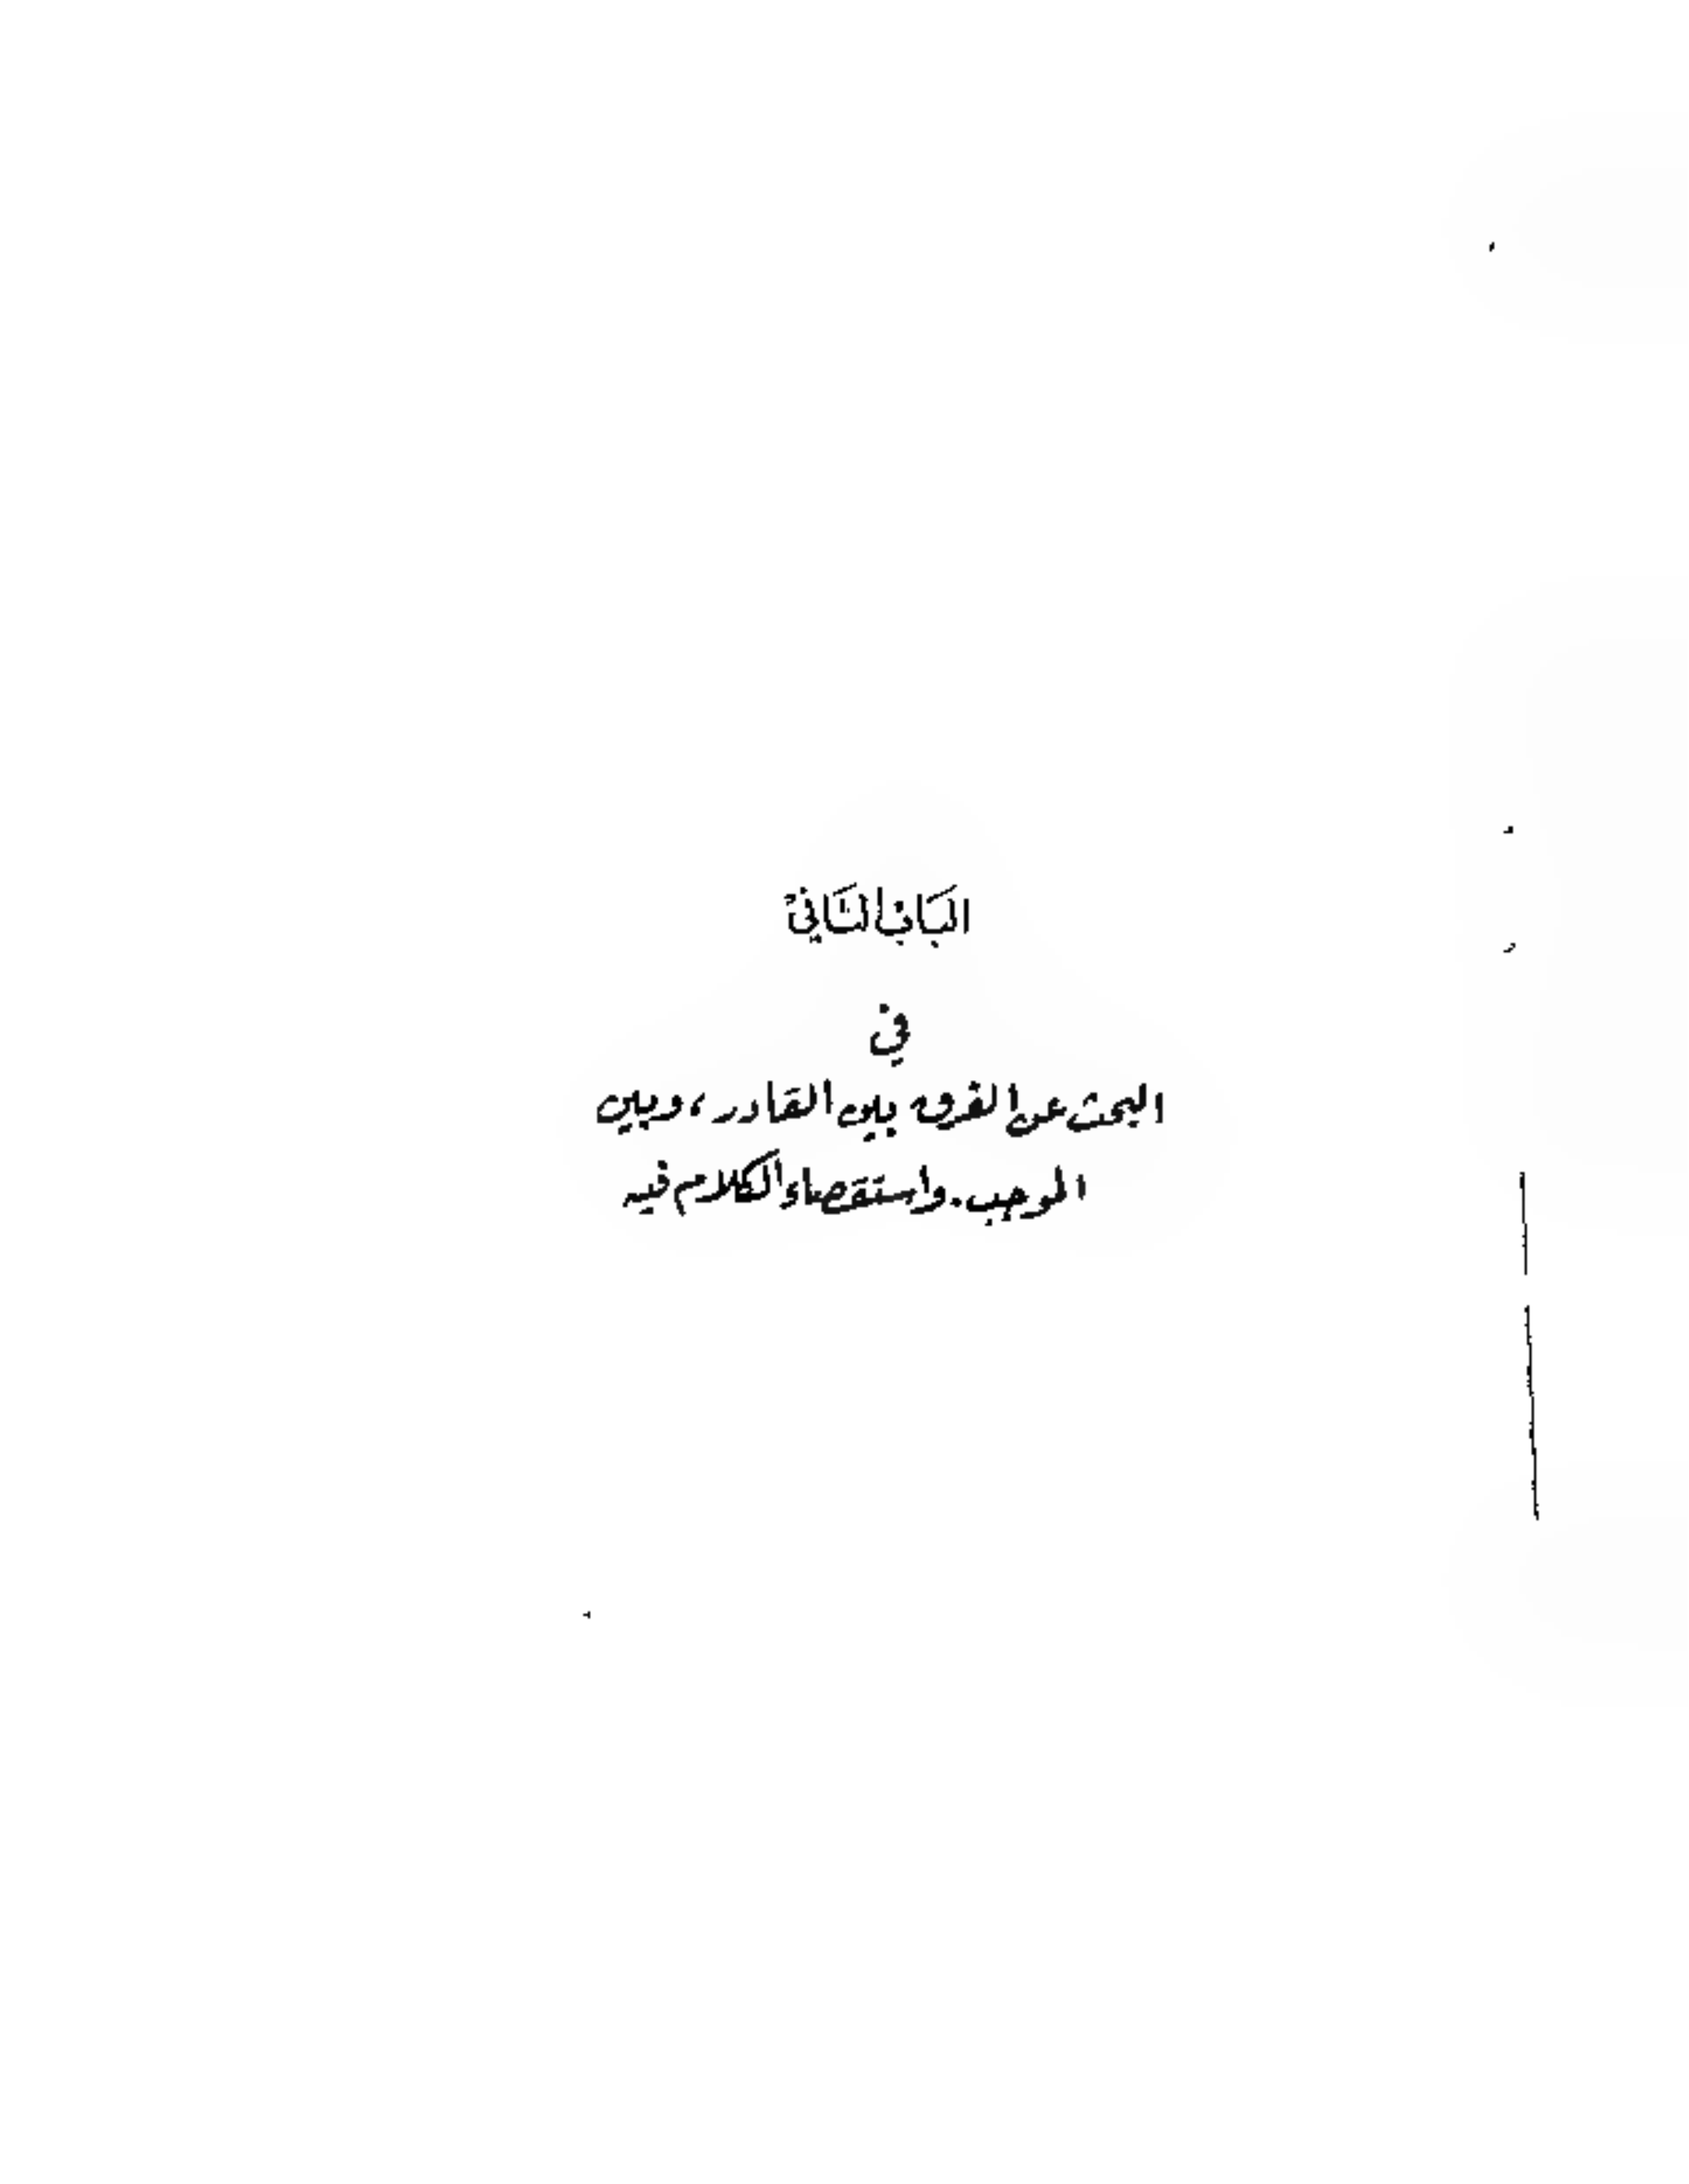 الباب الثاني
في
البحث عن الفرق بين القادر، وبين
الموجب. واستقصاء الكلام فيه